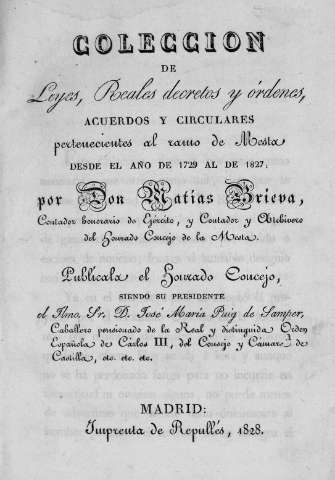 COLECCION
DE
Leyes, Reales decretos y órdenes,
ACUERDOS Y CIRCULARES
pertenecientes al ramo de Mesta
DESDE EL AÑO DE 1729 AL DE 1827:
por Don Matías Brieva,
Contador honorario de Ejército, y Contador y Archivero
del Honrado Concejo de la Mesta.
Publícala el Honrado Concejo,
SIENDO SU PRESIDENTE
el Ilmo. Sr. D. José María Puig de Samper,
Caballero pensionado de la Real y distinguida Orden
Española de Cárlos III, del Consejo y Cámara de
Castilla, etc. etc. etc.
MADRID:
Imprenta de Repullés, 1828.